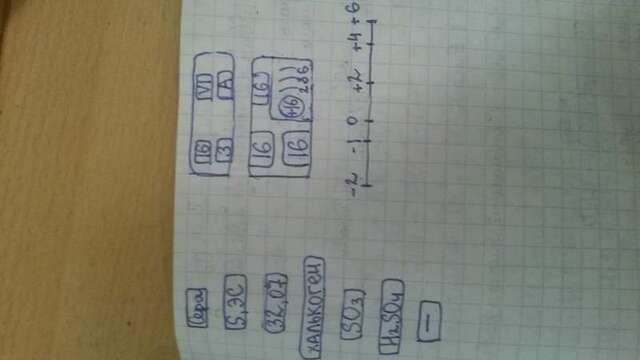 Сера 16 VI
S, ЭС 3 A
32,07 16 16
ХАЛЬКОГЕН 16 +16 ) ) )
2 8 6
SO₃ -2 -1 0 +2 +4 +6
H₂SO₄
—